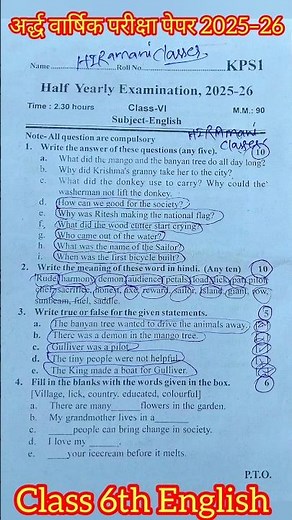 अर्द्ध वार्षिक परीक्षा पेपर 2025–26
HIRamani Classes
Name Roll No. KPS1
Half Yearly Examination, 2025-26
Time : 2.30 hours Class-VI M.M.: 90
Subject-English
HIRamani Classes
Note- All question are compulsory
1. Write the answer of these questions (any five). 10
a. What did the mango and the banyan tree do all day long?
b. Why did Krishna's granny take her to the city?
c. What did the donkey use to carry? Why could the washerman not lift the donkey.
d. How can we good for the society?
e. Why was Ritesh making the national flag?
f. What did the wood cutter start crying?
g. Who came out of the water?
h. What was the name of the Sailor?
i. When was the first bicycle built?
2. Write the meaning of these word in hindi. (Any ten) 10
Rude, harmony, demon, audience, petals, load, sick, pan, pilot,
chef, sacrifice, honest, axe, reward, sailor, island, giant, row,
sunbeam, fuel, saddle.
3. Write true or false for the given statements. 5
a. The banyan tree wanted to drive the animals away.
b. There was a demon in the mango tree.
c. Gulliver was a pilot.
d. The tiny people were not helpful.
e. The King made a boat for Gulliver.
4. Fill in the blanks with the words given in the box. 6
[Village, lick, country, educated, colourful]
a. There are many______ flowers in the garden.
b. My grandmother lives in a________
c. _____people can bring change in society.
d. I love my ______.
e. _____your icecream before it melts.
P.T.O.
Class 6th English